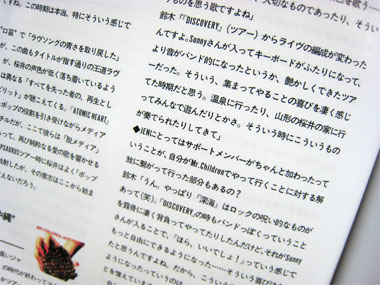 ものを思う歌ですよね」
鈴木「『DISCOVERY』（ツアー）からライヴの編成が変わった
んですよ。Sunnyさんが入ってキーボードがふたりになって、
より音がバンド的になったというか、艶かしくできたツア
ーだった。そういう、集まってやることの喜びを凄く感じ
てた時期だと思う。温泉に行ったり、山形の桜井の家に行
ってみんなで遊んだりとかさ。そういう時にこういうもの
が奏でられたりしてきて」
◆JENにとってはサポートメンバーがちゃんと加わったって
いうことが、自分がMr.Childrenでやって行くことに対する解
放に繋がって行った部分もあるの？
鈴木「うん。やっぱり『深海』はロックの呪い的なものが
あって（笑）。『DISCOVERY』の時もバンドっぽくっていうこと
を背骨に凄く背負ってやってたりしたんだけど、それがSunny
さんが入ることで、『ほら、いいでしょ！』っていう感じで
もっと自由にできるようになった……そういう喜びがあっ
たと思うんですよね。だから、こうい
ようになったっていうのは
とを憶えている
すね。この時期は本当、特にそういう感じで
"口笛"で「ラヴソングの青さを取り戻した」
が、この曲もタイトルが指す通りの王道ラヴ
が、桜井の声色が低く落ち着いているよう
は異なる「すべてを失った者の、再生とし
リット」が聴こえてくる。『ATOMIC HEART』
ポップの役割を引き受けながらメディア
チルだが、ここで彼らは「脱メディア」
って、再び純粋な愛の歌を響かせる